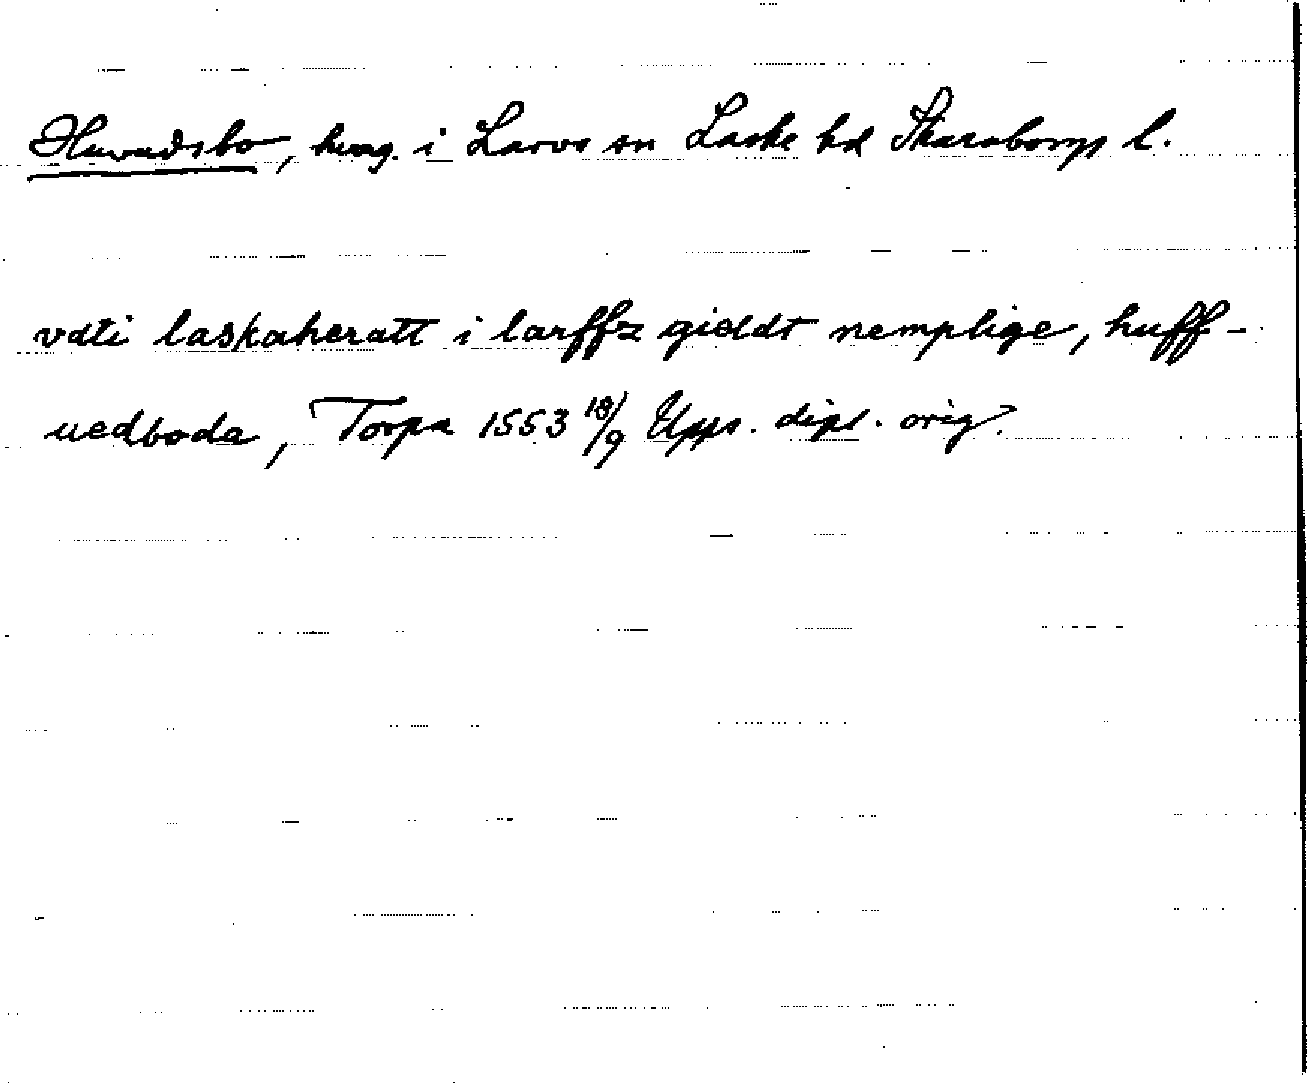 Huvudsbo, hmg. i Larvs sn Laske hd Skaraborgs l.
vdti laskaheratt i larffz gieddt nemplige, huff-
uedboda, Torpa 1553 18/9 Upps. dipl. orig.